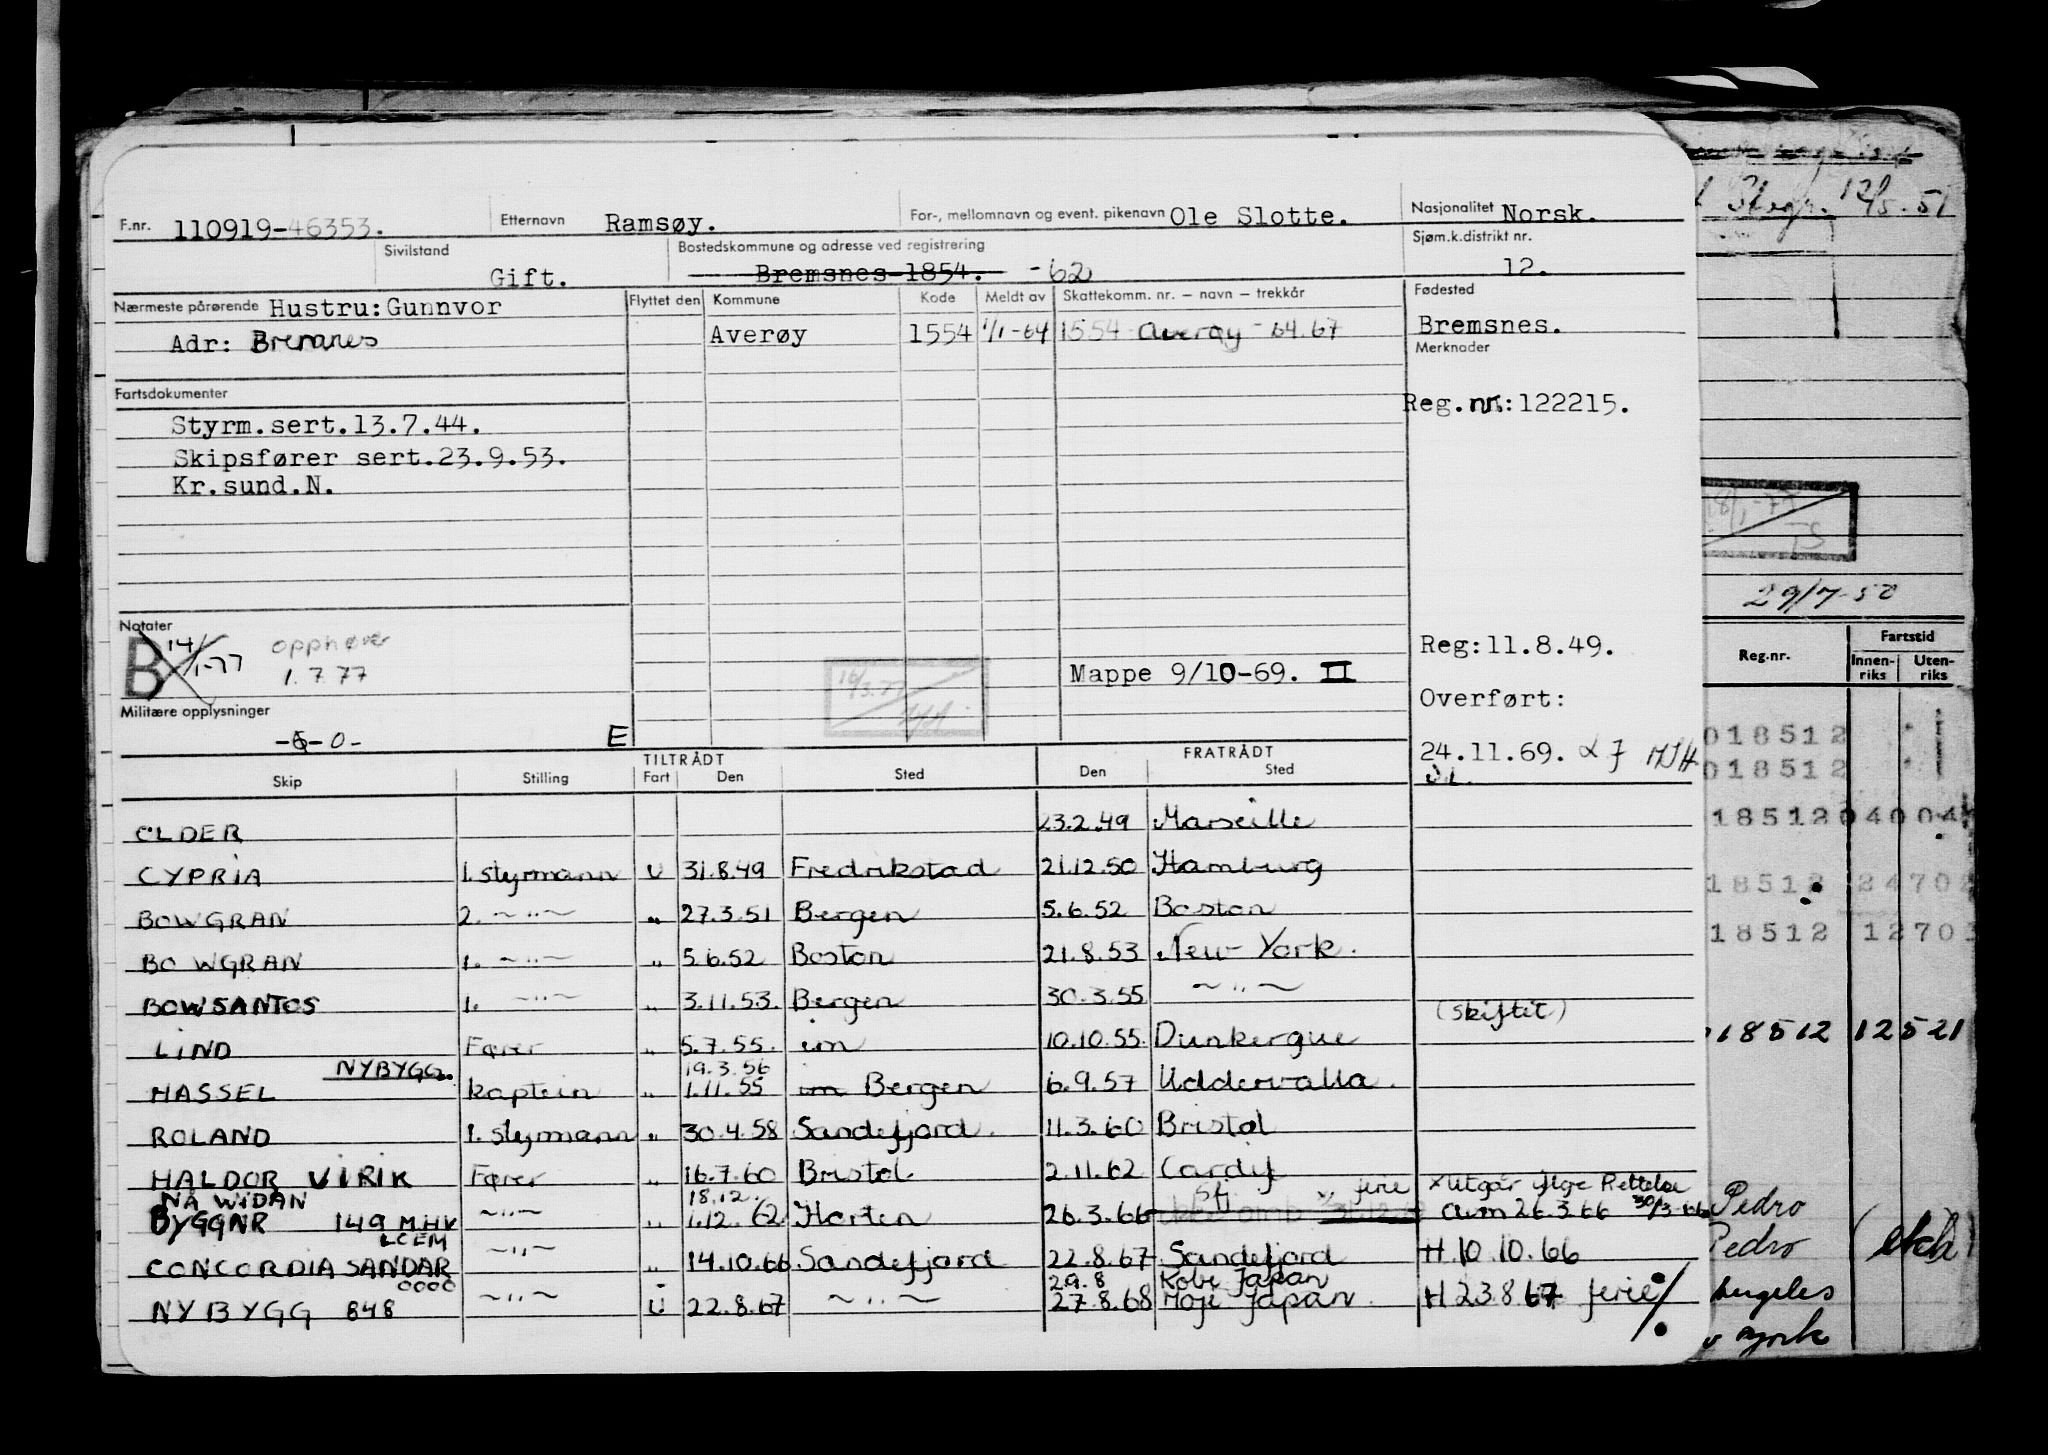 F.nr. 110919-46353. Etternavn Ramsøy. For-, mellomnavn og event. pikenavn Ole Slotte. Nasjonalitet Norsk.
Sivilstand Gift. Bostedskommune og adresse ved registrering Bremsnes 1854. -62 Sjøm.k.distrikt nr. 12.
Nærmeste pårørende Hustru: Gunnvor Flyttet den Kommune Kode Meldt av Skattekomm. nr. – navn – trekkår Fødested
Adr: Bremsnes Averøy 1554 1/1-64 1554 Averøy 64.67 Bremsnes.
Merknader
Fartsdokumenter
Reg.nr.:122215.
Styrm.sert.13.7.44.
Skipsfører sert.23.9.53.
Kr.sund.N.
Notater
B 14/1-77 opphører
1.7.77
Reg:11.8.49.
Mappe 9/10-69. II
Overført:
Militære opplysninger
-0- E
24.11.69.
TILTRÅDT FRATRÅDT
Skip Stilling Fart Den Sted Den Sted
OLDER 23.2.49 Marseille
CYPRIA 1. styrmann U 31.8.49 Fredrikstad 21.12.50 Hamburg
BOWGRAN 2. ~ " ~ " 27.3.51 Bergen 5.6.52 Boston
BOWGRAN 1. ~ " ~ " 5.6.52 Boston 21.8.53 New York.
BOWSANTOS 1. ~ " ~ " 3.11.53. Bergen 30.3.55 ~ " ~
(skiftet)
LIND Fører " 5.7.55. im 10.10.55. Dunkerque
NYBYGG. 19.3.56
HASSEL kaptein " 1.11.55 im Bergen 6.9.57 Uddervalla.
ROLAND 1. styrmann " 30.4.58 Sandefjord. 11.3.60 Bristol
HALDOR VIRIK Fører " 16.7.60 Bristol 2.11.62 Cardif
NÅ WIDAN 18.12. ferie x utgår iflge Rettelse
BYGGNR 149 M.H.V ~ " ~ " 1.12.62 Horten 26.3.66 avm 26.3.66 30/3-66
LCEM
CONCORDIA SANDAR ~ " ~ " 14.10.66 Sandefjord 22.8.67 Sandefjord H 10.10.66
OOOO 29.8 Kobe Japan
NYBYGG 848 ~ " ~ U 22.8.67 ~ " ~ 27.8.68 Moji Japan. H 23.8.67 ferie ./.
12/5.51
18/1-77
29/7-50
Reg.nr. Fartstid
Innen-riks Uten-riks
018512
018512
18512 04004
18512 2470
18512 12703
018512 12521
Pedro
Pedro
Angeles
York